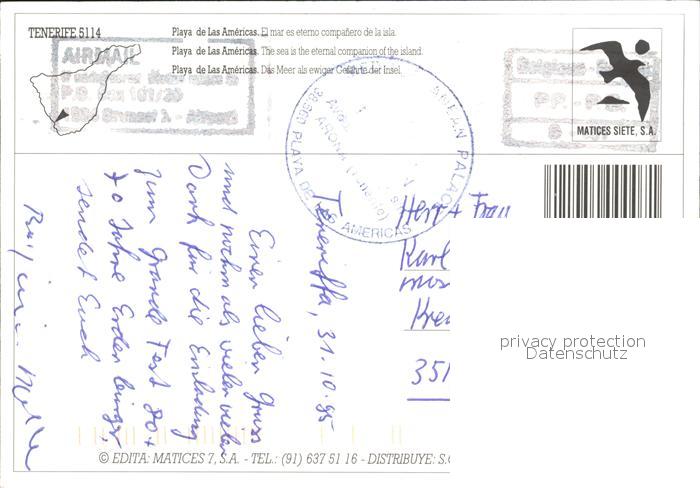 TENERIFE 5114
Playa de Las Américas. El mar es eterno compañero de la isla.
Playa de Las Américas. The sea is the eternal companion of the island.
Playa de Las Américas. Das Meer als ewiger Gefährte der Insel.
AIRMAIL
P.O. Box
MATICES SIETE, S.A.
PALACE
38.660 PLAYA DE LAS AMERICAS
Teneriffa, 31.10.95
Einen lieben Gruss
und nochmals vielen vielen
Dank für die Einladung
zum Grande Fest 80+
70 Jahre Erden
sendet Euch
Herr + Frau
Karl
351
privacy protection
Datenschutz
© EDITA: MATICES 7, S.A. - TEL.: (91) 637 51 16 - DISTRIBUYE: